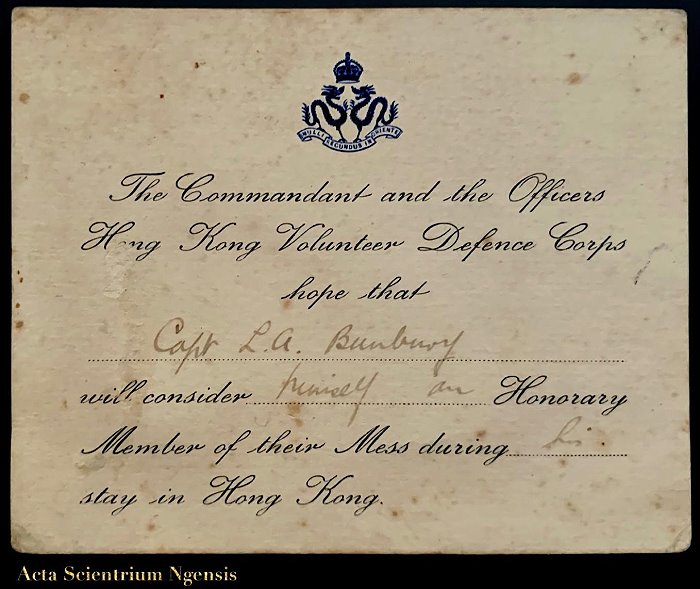 NULLI SECUNDUS IN ORIENTE
The Commandant and the Officers
Hong Kong Volunteer Defence Corps
hope that
Capt L.A. Bunbury
will consider himself an Honorary
Member of their Mess during his
stay in Hong Kong.
Acta Scientrium Ngensis